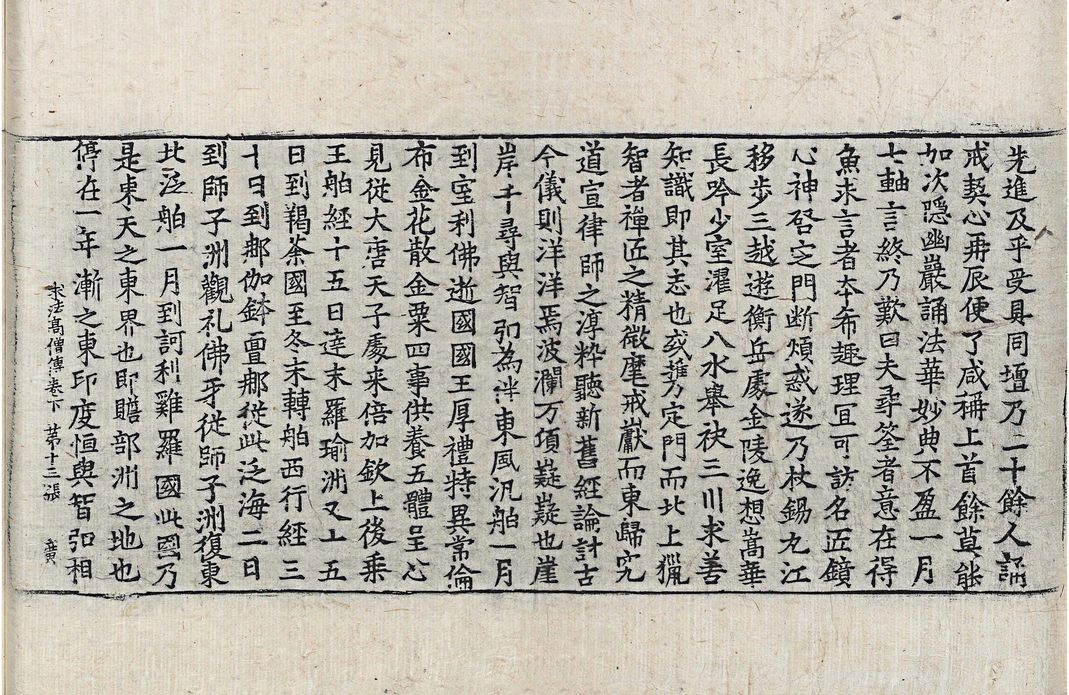 先進及乎受具同壇乃二十餘人誦
戒契心再辰便了咸稱上首餘莫能
加次隱幽巖誦法華妙典不盈一月
七軸言終乃歎曰夫尋筌者意在得
魚求言者本希趣理宜可訪名匠鏡
心神啓定門断煩惑遂乃杖錫九江
移步三越遊衡岳處金陵逸想嵩華
長吟少室濯足八水舉袂三川求善
知識即其志也或𢲸定門而北上獵
智者禪匠之精微麾戒巘而東歸究
道宣律師之淳粋聽新舊經論討古
今儀則洋洋焉波瀾万頃嶷嶷也崖
岸千尋與智弘為泮東風汎舶一月
到室利佛逝國國王厚禮特異常倫
布金花散金粟四事供養五體呈心
見從大唐天子處来倍加欽上後乗
王舶經十五日達末羅瑜洲又十五
日到羯荼國至冬末轉舶西行經三
十日到那伽鉢亶那從此泛海二日
到師子洲觀礼佛牙從師子洲復東
北泛舶一月到訶利雞羅國此國乃
是東天之東界也即贍部洲之地也
停在一年漸之東印度恒與智弘相
求法髙僧傳卷下 苐十三張 廣